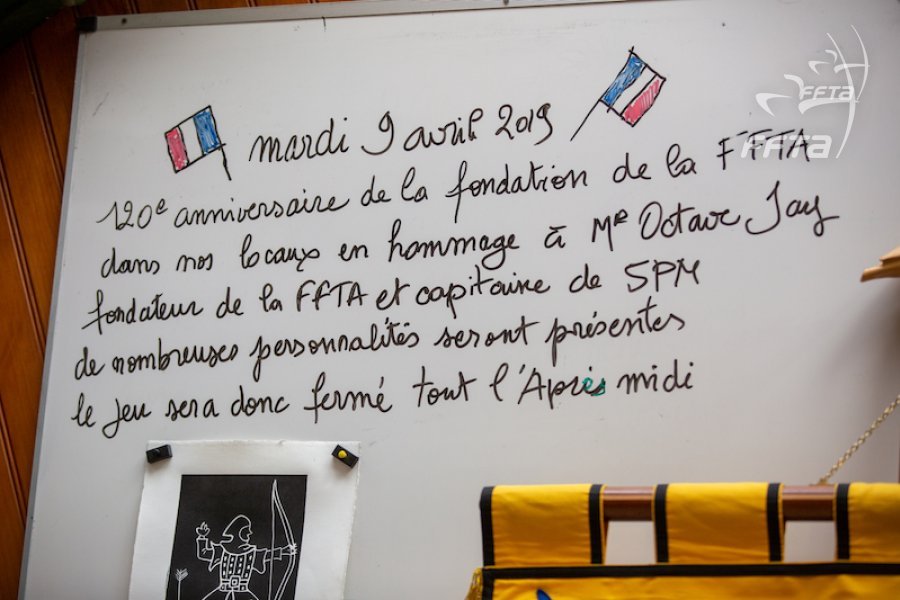 FFTA
FFTA
mardi 9 avril 2019
120e anniversaire de la fondation de la FFTA
dans nos locaux en hommage à Mr Octave Jay
fondateur de la FFTA et capitaine de SPM
de nombreuses personnalités seront présentes
le jeu sera donc fermé tout l'Après midi